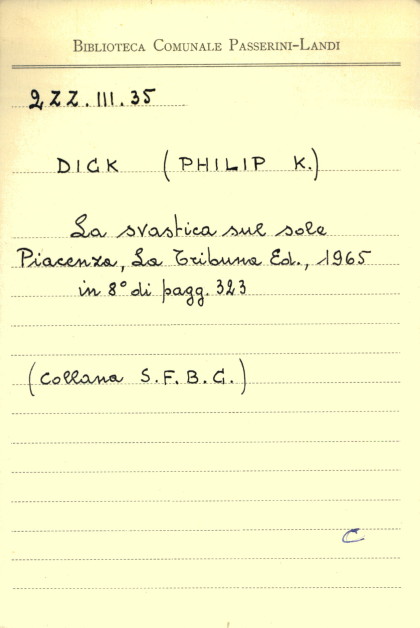 BIBLIOTECA COMUNALE PASSERINI-LANDI
2ZZ.III.35
DICK (PHILIP K.)
La svastica sul sole
Piacenza, La Tribuna Ed., 1965
in 8° di pagg. 323
(Collana S.F.B.C.)
C